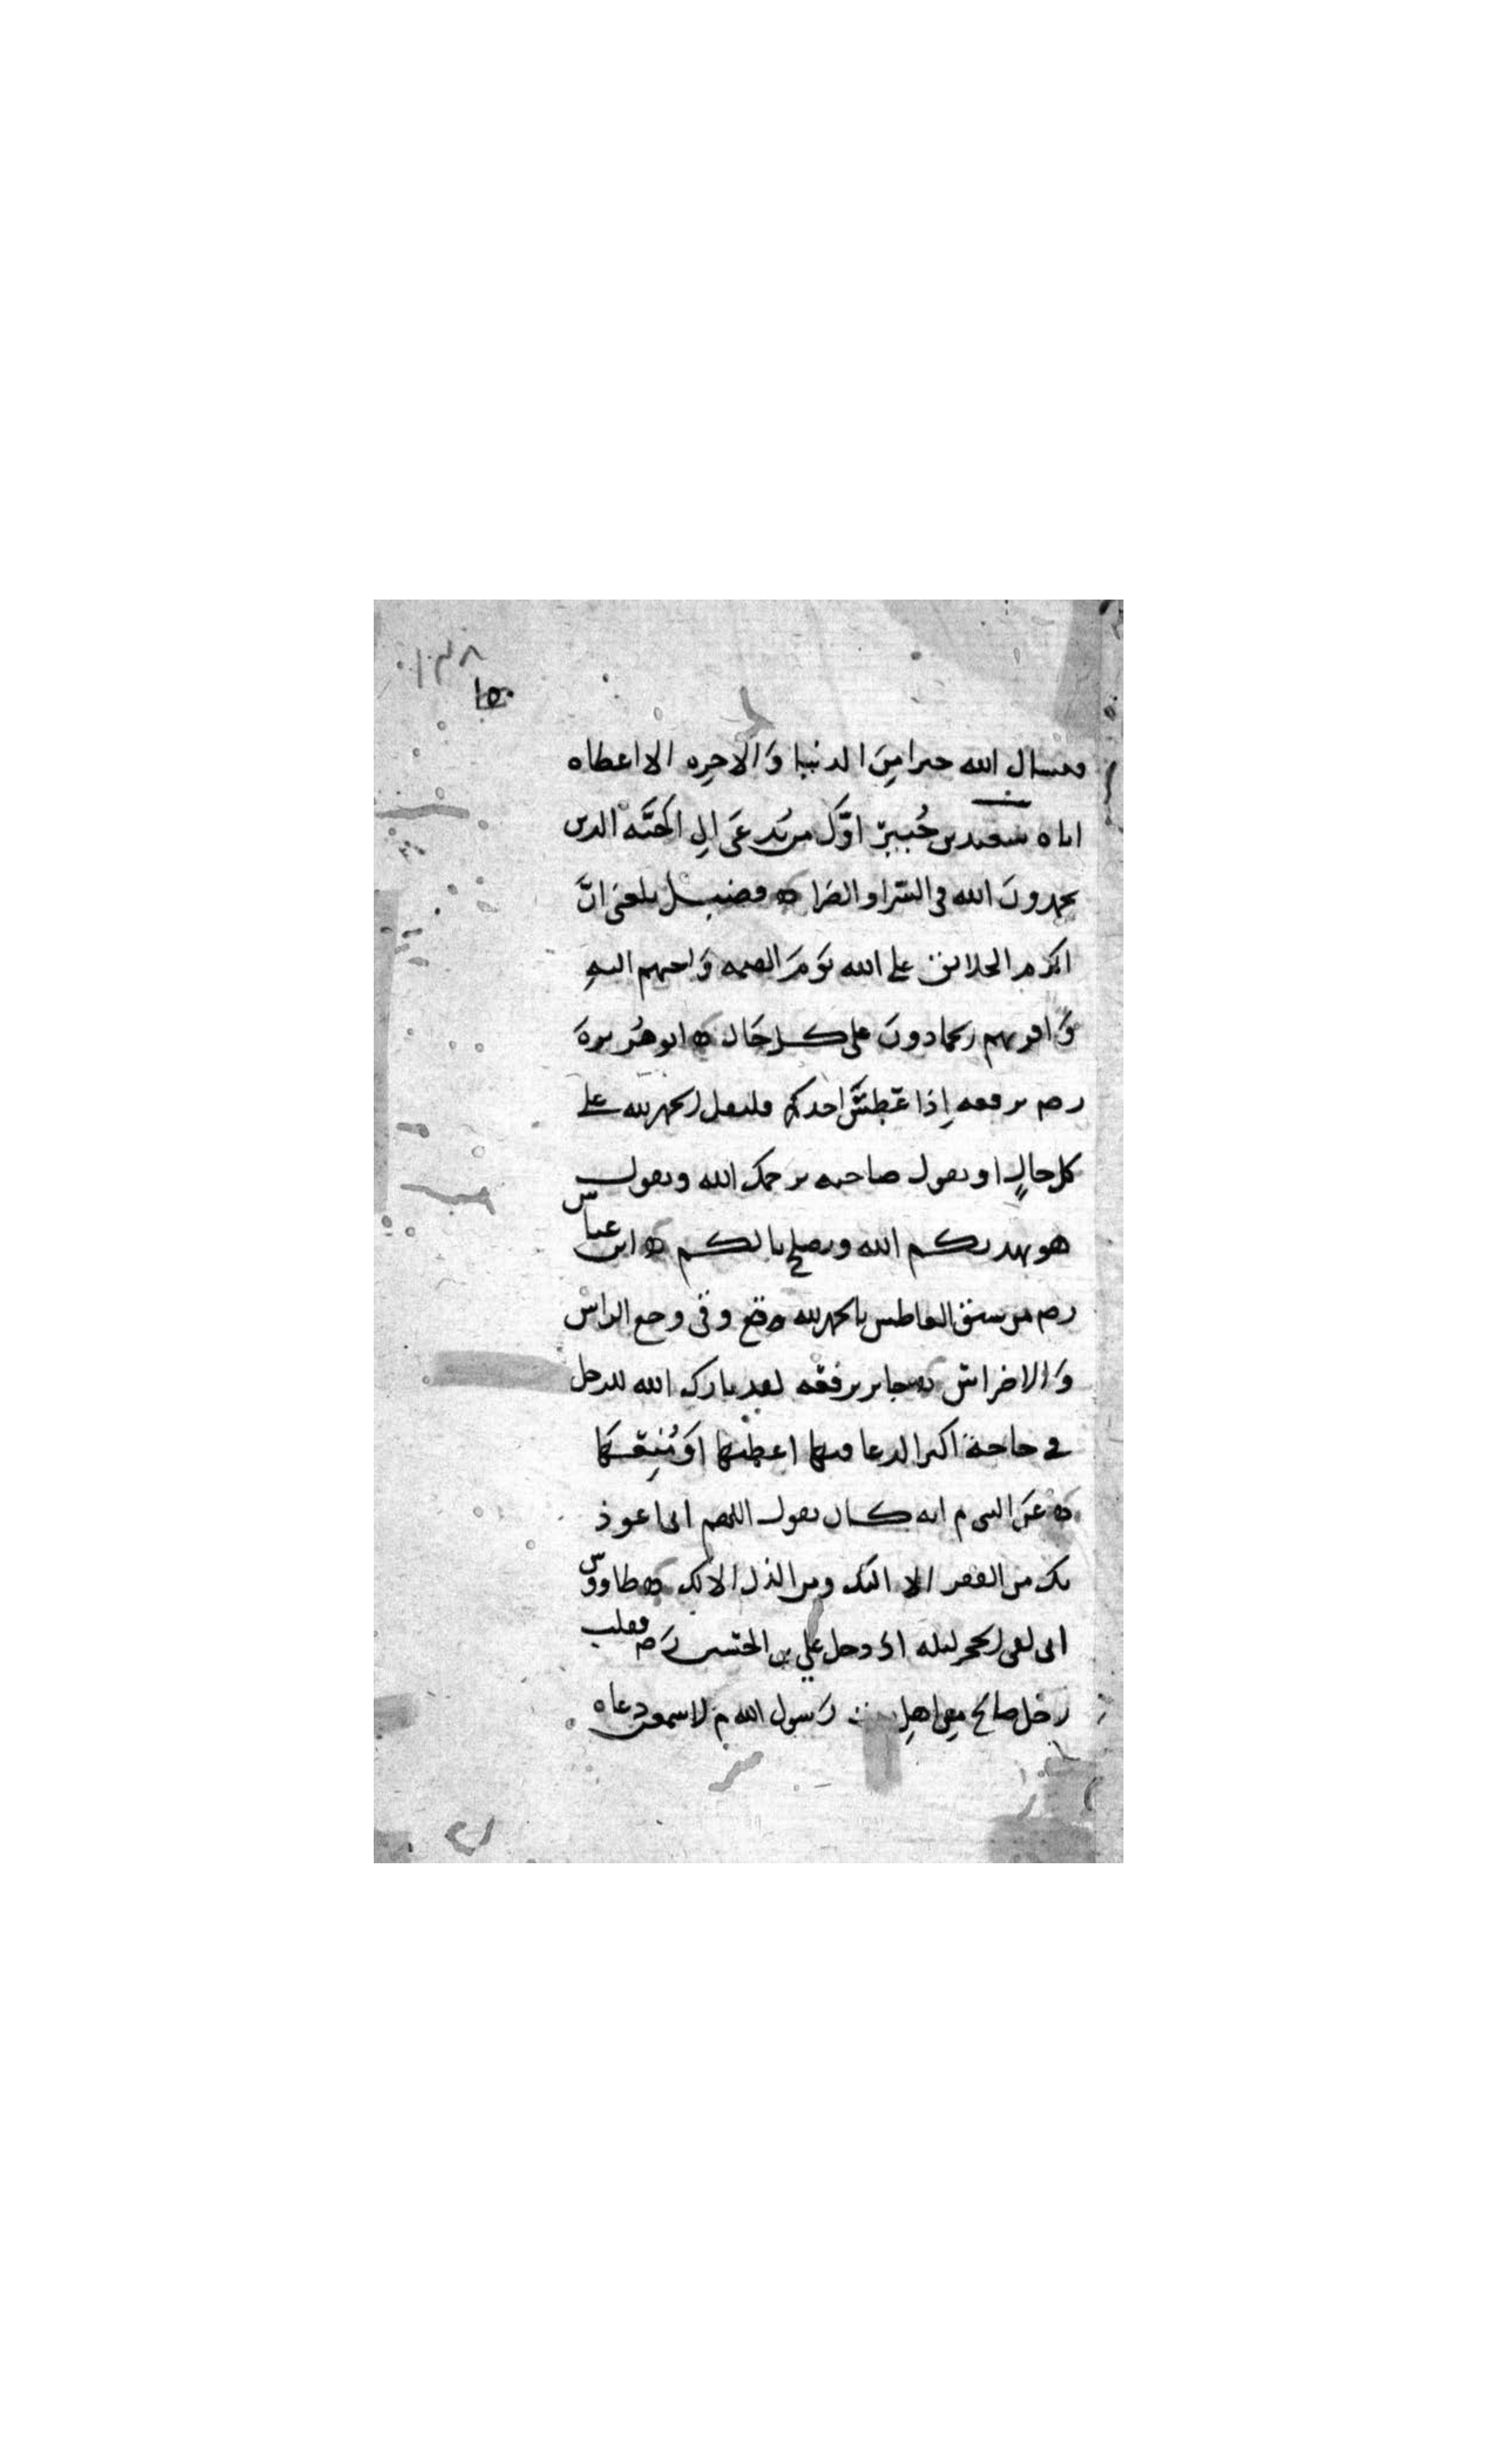 ١٣٨
١٥٠
فيسال الله خيرا مِنَ الدنيا وَالاخِره الا اعطاه
اياه سَعيد بن جُبَيرٍ اوَّل من يُدعَى الى الجَنَّه الذين
يحمدونَ الله في السَّرا والضَرا فضيل بلغنى انَّ
اكرم الخلائق على الله يَومَ القيمه وَاحبهم اليهِ
وَاقربهم الحمادونَ على كل حَال ابو هُريرهَ
رصه يرفعه إذا عَطَسَ احدكم فليقل الحمد لله على
كل حالٍ او يقول صاحبه يرحمك الله ويقول
هو يهديكم الله ويصلح بالكم ابن عباس
رصه من سبق العاطس بالحمد لله وقى وجع الراس
وَالاضراس جابر يرفعه لقد بارك الله للرجل
في حاجة اكثر الدعا فيها اعطيها اَو مُنِعَهَا
عَن النبي م انه كان يقول اللهم انى اعوذ
بك من الفقر الا اليك ومن الذل الا لك طاووس
انى لفى الحجر ليله اذ دخل علي بن الحسين رَصه فقلت
رجل صالح من اهلِ بيت رَسول الله م لاسمعن دعاه